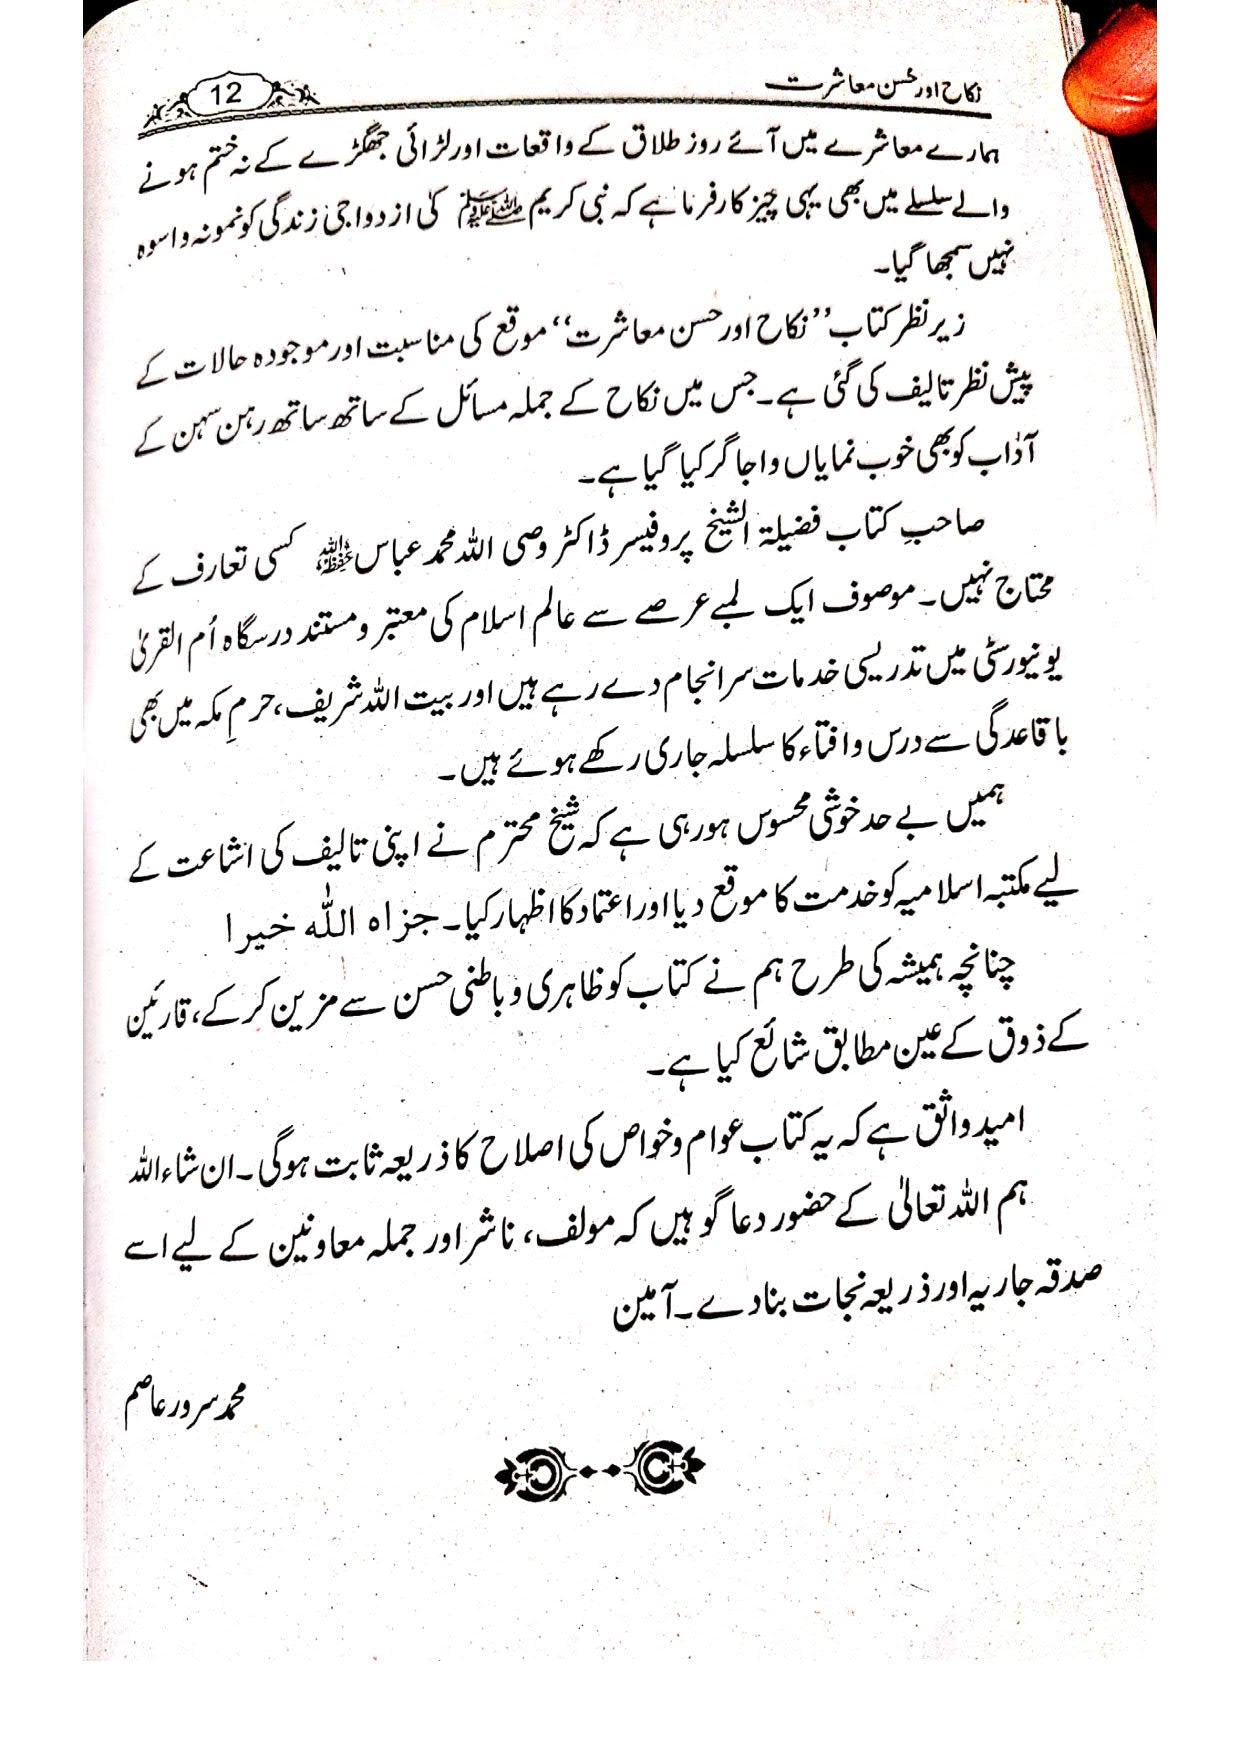 نکاح اور حُسن معاشرت
12
ہمارے معاشرے میں آئے روز طلاق کے واقعات اور لڑائی جھگڑے کے نہ ختم ہونے
والے سلسلے میں بھی یہی چیز کارفرما ہے کہ نبی کریم ﷺ کی ازدواجی زندگی کو نمونہ و اسوہ
نہیں سمجھا گیا۔
زیر نظر کتاب ’’نکاح اور حسن معاشرت‘‘ موقع کی مناسبت اور موجودہ حالات کے
پیش نظر تالیف کی گئی ہے۔ جس میں نکاح کے جملہ مسائل کے ساتھ ساتھ رہن سہن کے
آداب کو بھی خوب نمایاں و اجاگر کیا گیا ہے۔
صاحبِ کتاب فضیلۃ الشیخ پروفیسر ڈاکٹر وصی اللہ محمد عباس حفظہ اللہ کسی تعارف کے
محتاج نہیں۔ موصوف ایک لمبے عرصے سے عالم اسلام کی معتبر و مستند درسگاہ اُم القریٰ
یونیورسٹی میں تدریسی خدمات سرانجام دے رہے ہیں اور بیت اللہ شریف، حرمِ مکہ میں بھی
باقاعدگی سے درس و افتاء کا سلسلہ جاری رکھے ہوئے ہیں۔
ہمیں بے حد خوشی محسوس ہو رہی ہے کہ شیخ محترم نے اپنی تالیف کی اشاعت کے
لیے مکتبہ اسلامیہ کو خدمت کا موقع دیا اور اعتماد کا اظہار کیا۔ جزاہ اللّٰہ خیرا
چنانچہ ہمیشہ کی طرح ہم نے کتاب کو ظاہری و باطنی حسن سے مزین کر کے، قارئین
کے ذوق کے عین مطابق شائع کیا ہے۔
امید واثق ہے کہ یہ کتاب عوام و خواص کی اصلاح کا ذریعہ ثابت ہوگی۔ ان شاء اللہ
ہم اللہ تعالیٰ کے حضور دعا گو ہیں کہ مولف، ناشر اور جملہ معاونین کے لیے اسے
صدقہ جاریہ اور ذریعہ نجات بنا دے۔ آمین
محمد سرور عاصم